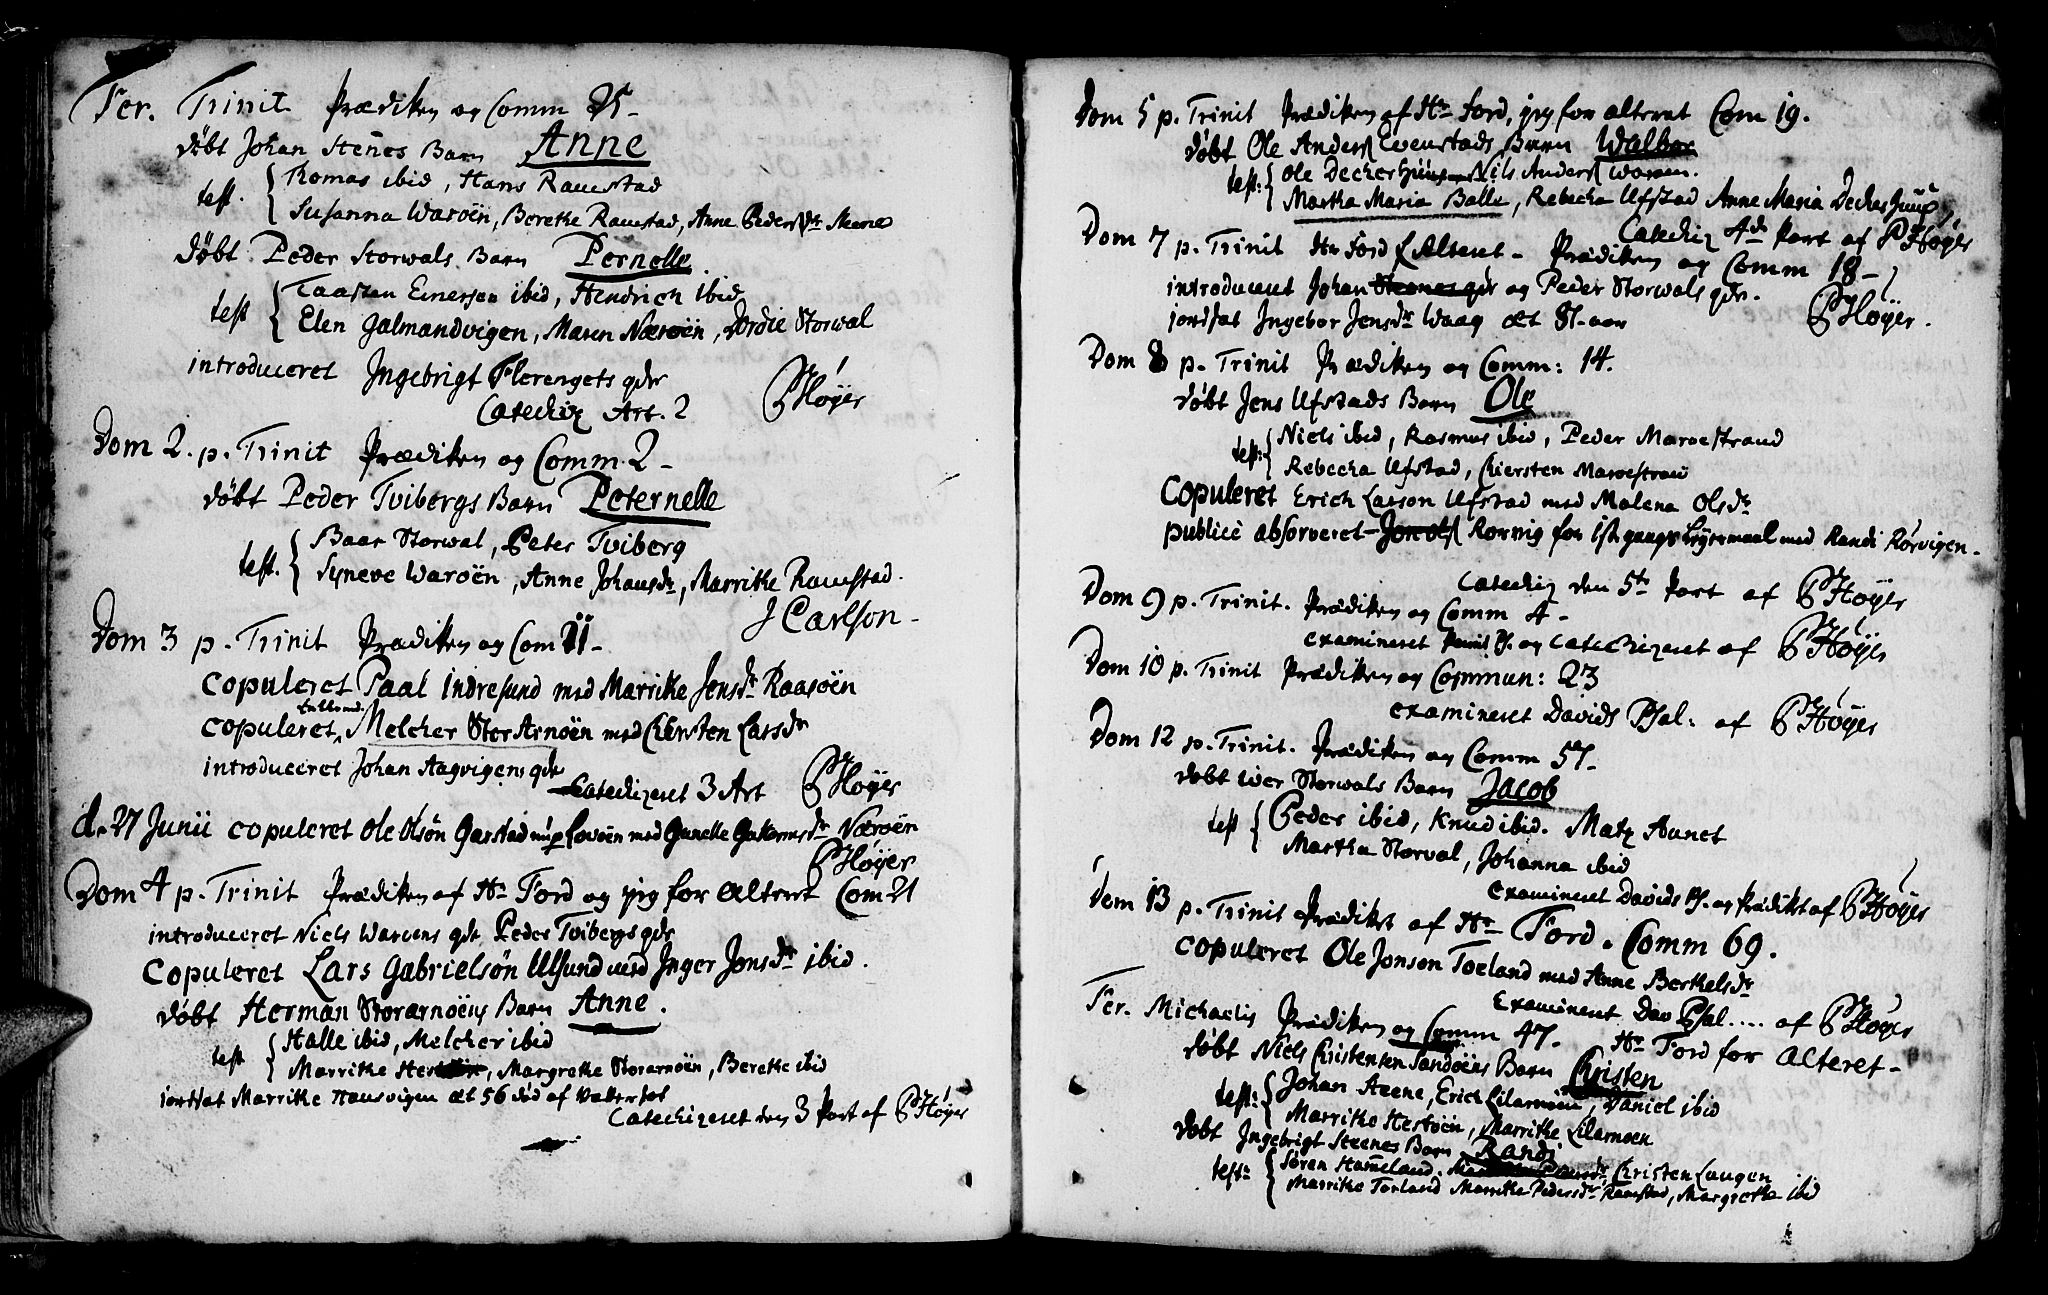 Fer. Trinit Prædiken og Comm 25-
døbt Johan Stenes Barn Anne
test. Tomas ibid, Hans Ramstad
Susanna Waroën, Berethe Ramstad, Anne Peders dtr
døbt Peder Storwals Barn Pernelle
test Taasten Einersen ibid, Hendrich ibid
Elen Galmandvigen, Maren Næroën, Dordie Storwal
introduceret Ingebrigt Flerengets qde
Catechiz Art. 2 PHøyer
Dom 2. p. Trinit Prædiken og Comm. 2-
døbt Peder Tvibergs Barn Peternelle
test. Baar Storwal, Peter Tviberg
Syneve Waroën, Anne Johansdr, Marrithe Ramstad.
J Carlson-
Dom 3 p. Trinit Prædiken og Com 11-
copuleret Paal Indresund med Marrithe Jensdr Raasoën
copuleret Melcher Stor Arnøen med Chersten Larsdr
introduceret Johan Aagvigens qde
Catechizeret 3 Art PHøyer
d. 27 Junii copuleret Ole Olsøn Garstad med Gunelle Næroën
PHøyer
Dom 4 p. Trinit Prædiken af Hr Ford og jeg for Alteret Com 21
introduceret Niels Waroens qde Peder Tvibergs qde
copuleret Lars Gabrielsøn Ulsund med Inger Jonsdr ibid.
døbt Herman Storarnøens Barn Anne.
test Halle ibid, Melcher ibid
Marrithe, Margrethe Storarnoën, Berethe ibid
jordsat Marrithe Hansvigen æt 56 død af
Catechizeret den 3 Part af PHøyer
Dom 5 p. Trinit Prædiken af Hr Ford, jeg for alteret Com 19.
døbt Ole Anders Evenstads Barn Walbor
test: Ole Nils Anders Waroen.
Martha Maria Balle, Rebecha Ufstad Anne Maria
Catechiz 4de Part af PHøyer
Dom 7 p. Trinit Hr Ford f Alteret- Prædiken og Comm 18-
introduceret Johan Steenes qde og Peder Storwals qde.
jordsat Ingebor Jensdr Waag æt 81 aar PHøyer.
Dom 8 p. Trinit Prædiken og Comm: 14.
døbt Jens Ufstads Barn Ole
test: Niels ibid, Rasmus ibid, Peder Maroestrand
Rebecha Ufstad, Chiersten Maroestrand
copuleret Erich Larson Ufstad med Malena Olsdr
publice absolveret for 1st gangs Leyermaal med Randi Rørvigen-
Catechiz den 5te Part af PHøyer
Dom 9 p. Trinit. Prædiken og Comm 4-
examineret og Catechizeret af PHøyer
Dom 10 p. Trinit Prædiken og Commun: 23
examineret Davids Psal. af PHøyer
Dom 12 p. Trinit. Prædiken og Comm 57-
døbt Iver Storwals Barn Jacob
test Peder ibid, Knud ibid. Matz Aunet
Martha Storval, Johanna ibid
Examineret Davids Ps. og Prædiket af PHøyer
Dom 13 p. Trinit Prædiket af Hr Ford. Comm 69.
copuleret Ole Jonson Toeland med Anne Berthelsdr
Examineret Dav Psal.... af PHøyer
Fer. Michaelis Prædiken og Comm 47. Hr Ford for Alteret-
døbt Niels Christensen Sandoëns Barn Christen
test: Johan Steene, Erich Lilarnoën, Daniel ibid
Marrithe Hestoën, Marrithe Lilarnoen
døbt Ingebrigt Steenes Barn Randi
test: Søren Hameland, Christen Laugen
Marrithe Torland Marrithe Pedersdr Ramstad, Margrethe ibid